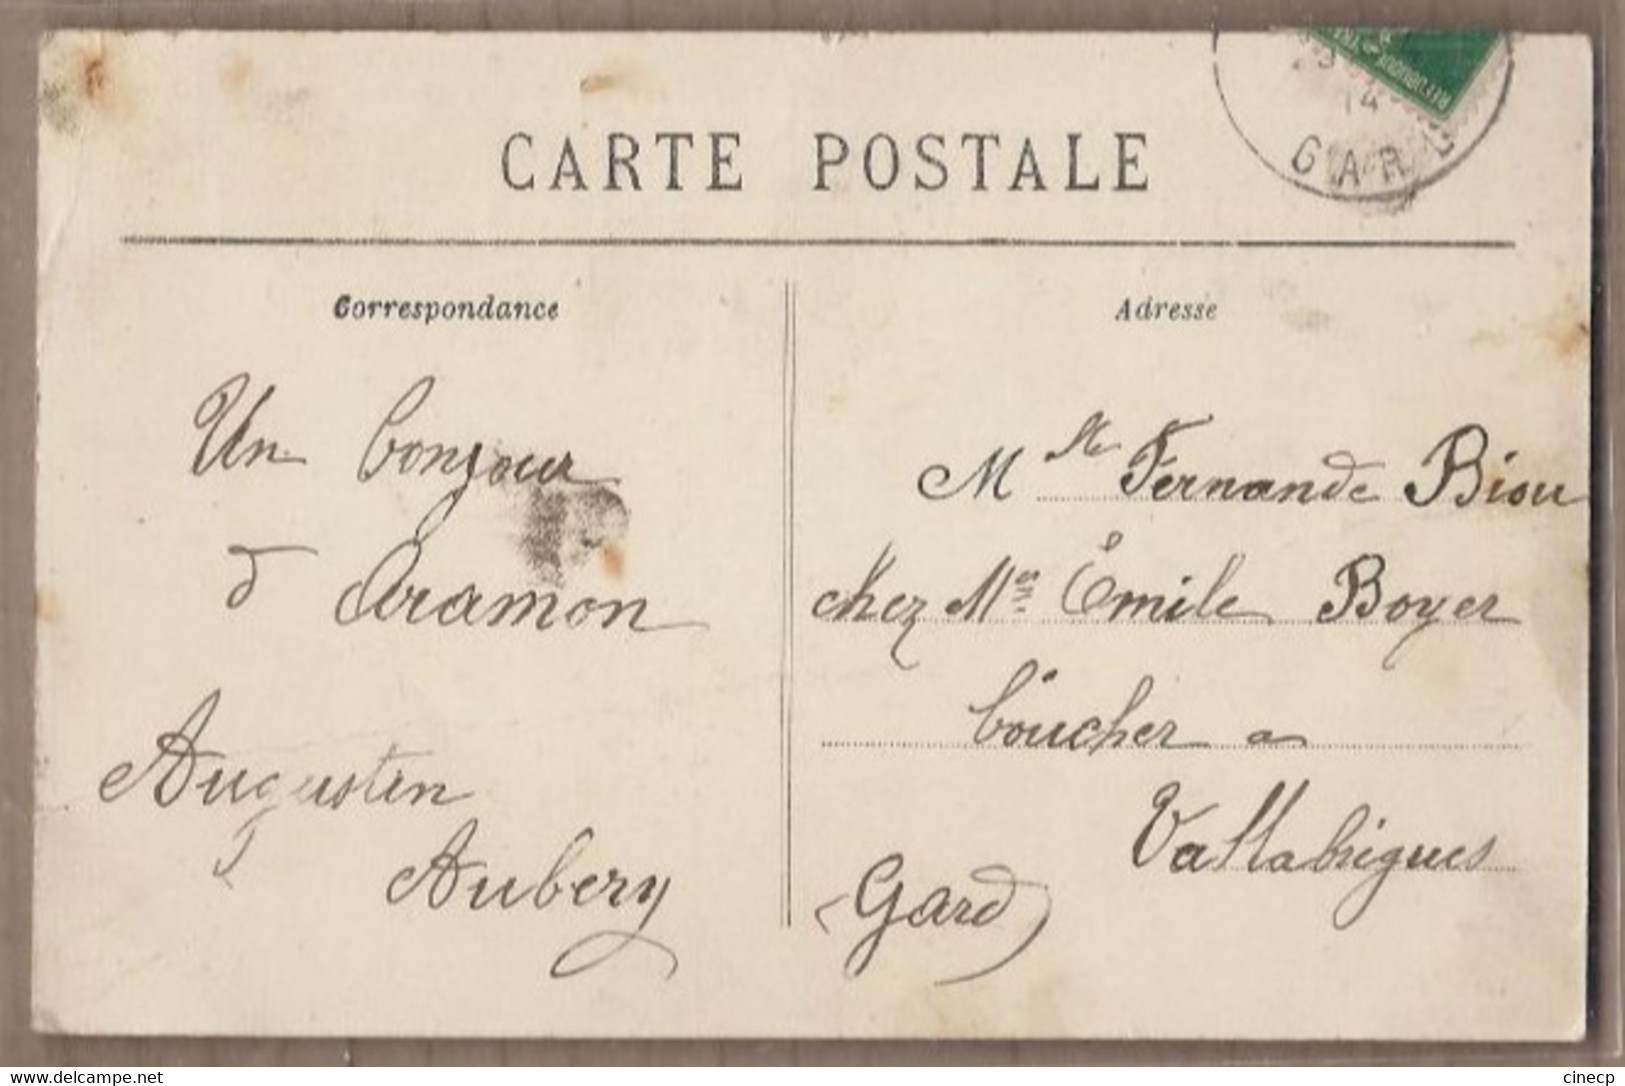 CARTE POSTALE
14
GARD
Correspondance
Un bonjour
d Aramon
Augustin
Aubery
Adresse
Mlle Fernande Biou
chez Mr Émile Boyer
boucher a
Vallabrigues
(Gard)
www.delcampe.net
cinecp